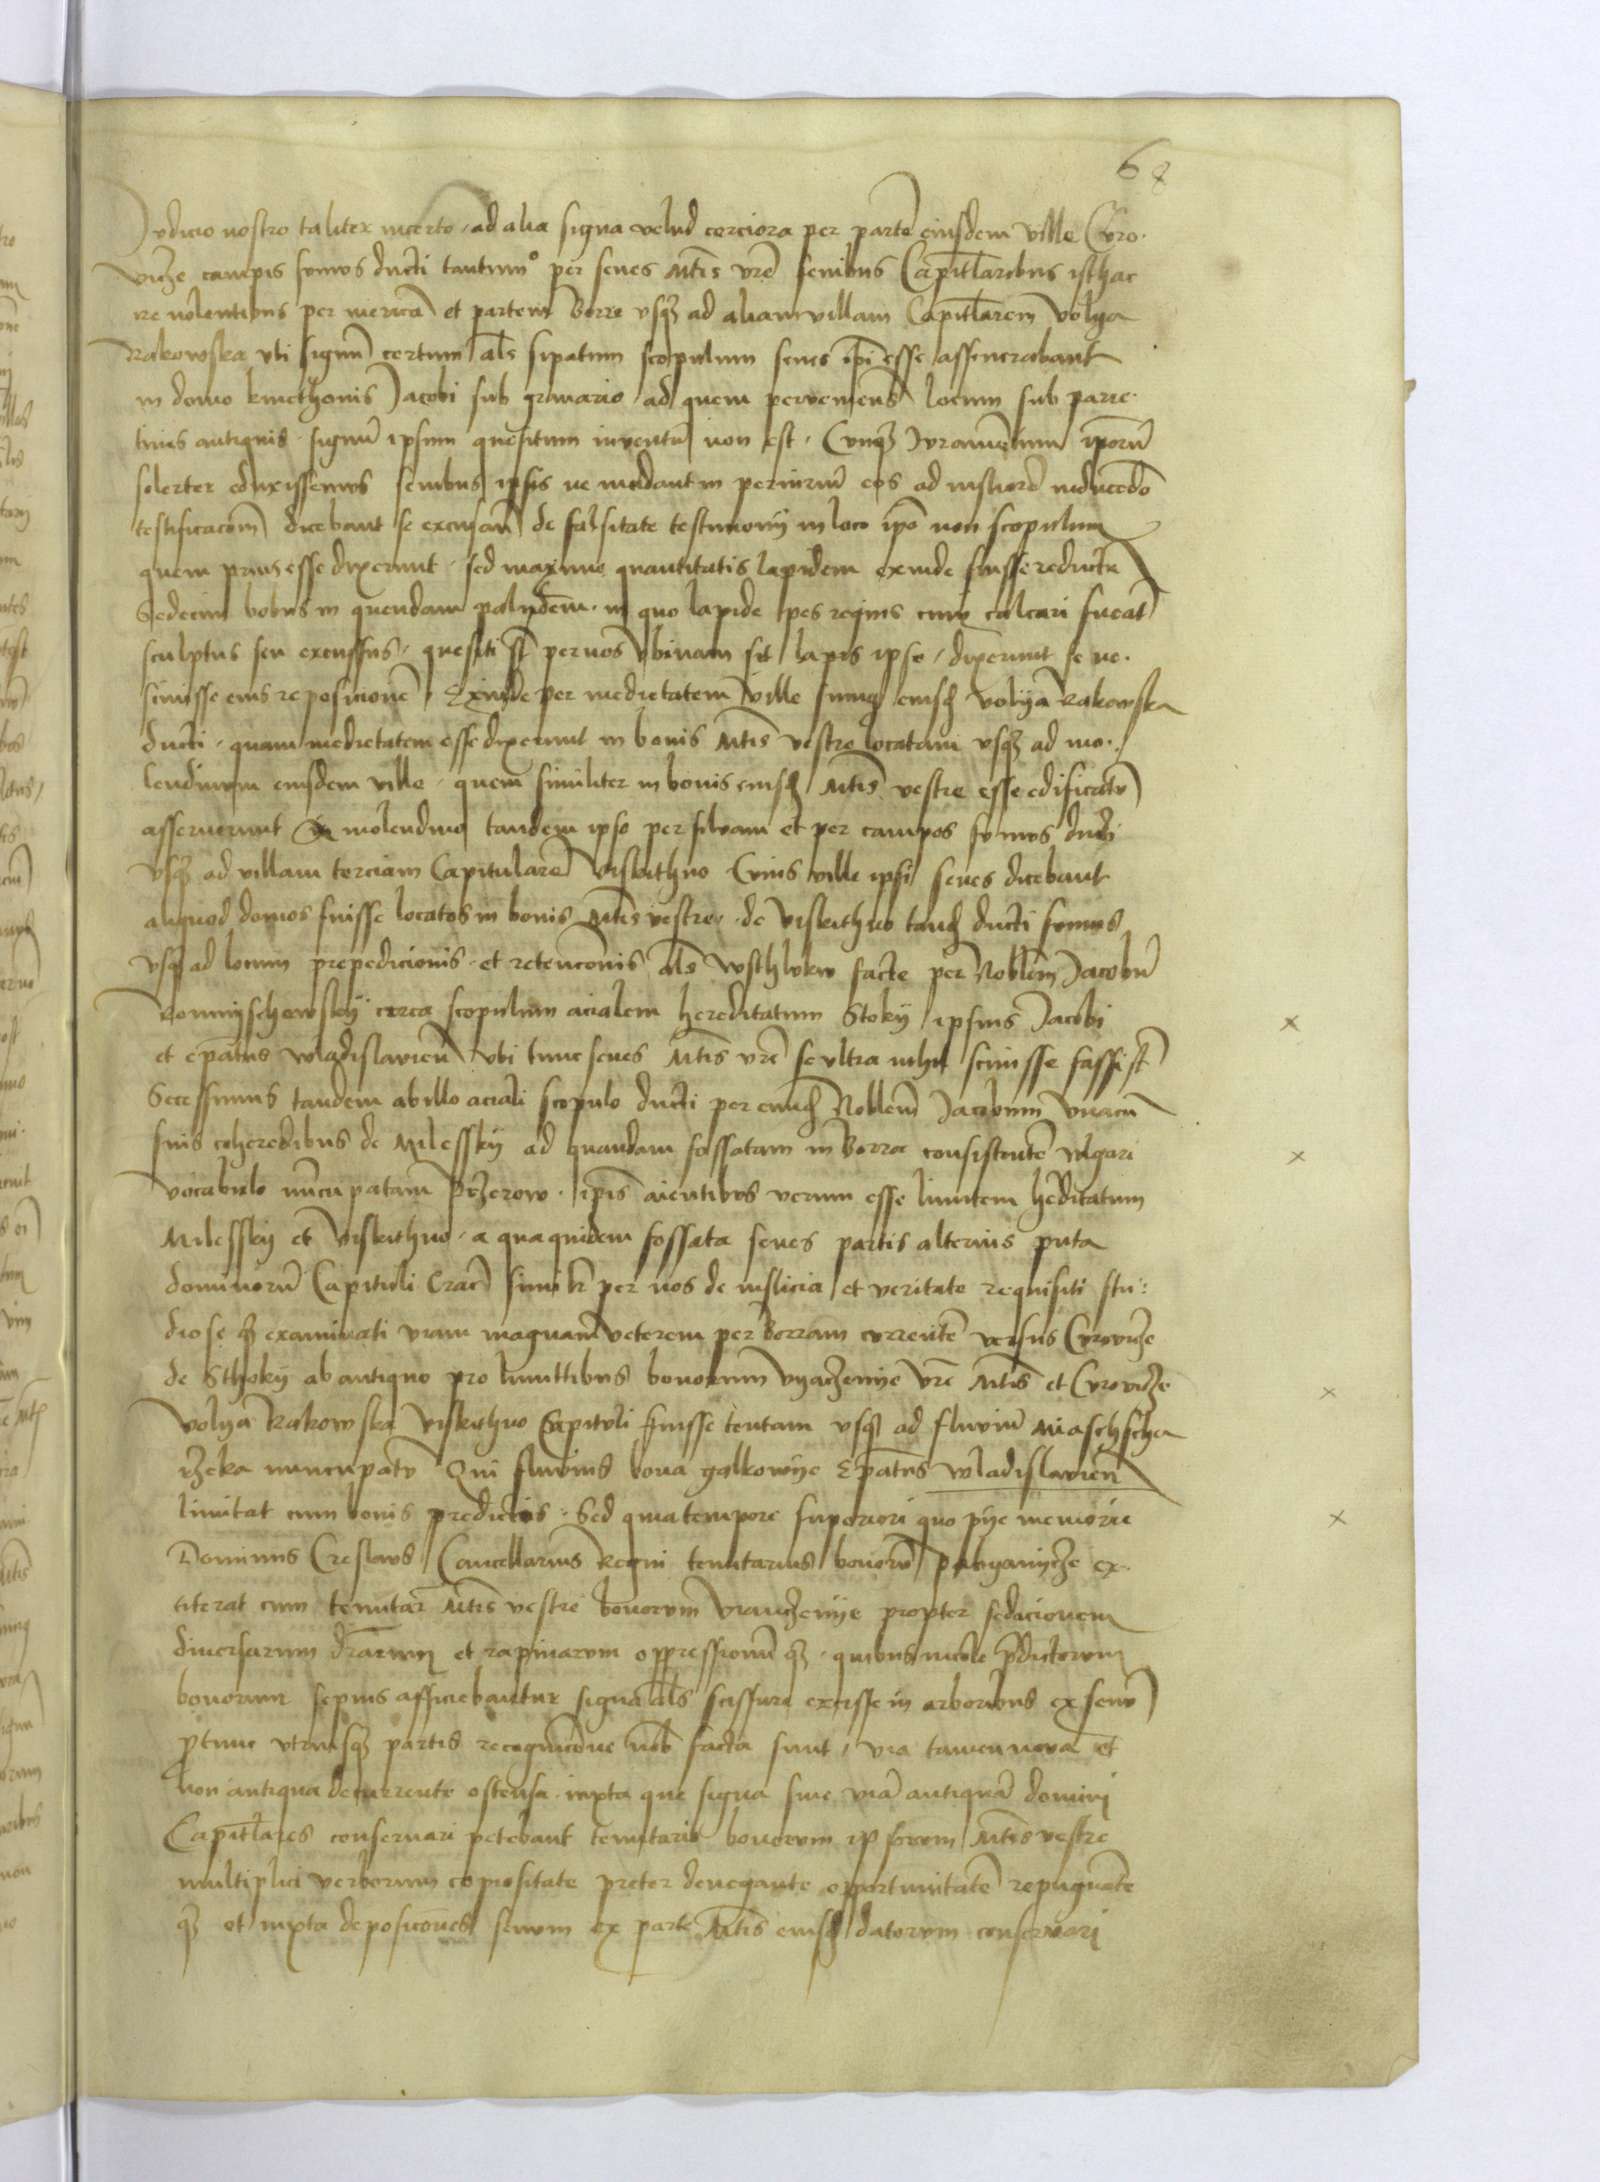 68
Iudicio nostro taliter incerto, ad alia signa velud cerciora per partem eiusdem ville Curo-
vicze campis sumus ducti tantum per senes Mtis vre senibus Capitularibus isthac
ire nolentibus per mericam et partem Borre usque ad aliam villam Capitlarem Volya
Rakowska ubi signum certum als sipatum scopulum senes ipi esse asseverabant
in domo kmethonis Jacobi sub granario ad quem pervemens locum sub parie-
tinis antiquis signum ipsum quesitum inventum non est. Cumque Iuramentum iporum
solerter eduxissemus senibus ipsis ne in periurium eos ad iustiorem inducendo
testificacom dicebant se excusan de falsitate testimonij in loco ipo non scopulum
quem prius esse dixerunt, sed maxime quantitatis lapidem exinde fuisse reductum
Sedecim bobus in quendam paludem, in quo lapide pes regius cum calcari fuerat
sculptus seu excussus, quesiti st per nos ubinam sit lapis ipse, dixerunt se ne-
scivisse eius reposicionem, Exinde per medietatem ville sumus eiusd Volya Rakowska
ducti, quam medietatem esse dixerunt in bonis Mtis vestre locatam usque ad mo-
lendinum eiusdem ville, quem similiter in bonis eiusd Mtis vestre esse edificatum
asseruerunt A molendino tandem ipso per silvam et per campos sumus ducti
usque ad villam terciam Capitularem Viskithno Cuius ville ipsi senes dicebant
aliquod domos fuisse locatos in bonis Mtis vestre, de Viskithno tand ducti sumus
usque ad locum prepedicionis et retencionis als wsthlokw facte per Noblem Jacobum
Romyschewsky circa scopulum acialem hereditatum Stoky ipsius Jacobi
et epatus wladislavien ubi tunc senes Mtis vre se ultra nihil scivisse fassi st
Secessimus tandem ab illo aciali scopulo ducti per eund Noblem Jacobum unacum
suis coheredibus de Milessky ad quandam fossatam in Borra consistentem vlgari
vocabulo nuncupatam Przerow, ipis aientibus verum esse limitem heditatum
Milessky et Viskithno, a qua quidem fossata senes partis alterius puta
dominorum Capituli Crac similr per nos de iusticia et veritate requisiti stu-
dioseque examinati viam magnam veterem per Borram currentem versus Curovicze
de Sthoky ab antiquo pro limittibus bonorum vyaczenye vre Mtis et Curovicze
Volya Rakowska Viskithno Capituli fuisse tentam usque ad fluvium Miaschscha
rzeka nuncupatum Qui fluvius bona galkowye Epatus wladislavien
limitat cum bonis predictis. Sed quia tempore superiori quo pye memorie
Dominus Creslaus Cancellarius Regni tenutarius bonorum pabyanycze ex-
titerat cum tenutar Mtis vestre bonorum vyaczenye propter sedacionem
diversarum et rapinarum oppressionumque, quibus incole pdictorum
bonorum sepius afficiebantur signa als scissure excisse in arboribus ex senum
ptunc utriusque partis recognicione nob facta sunt, via tamen nova et
non antiqua decurrente ostensa, iuxta que signa sive viam antiquam domini
Capitlares conservari petebant tenutario bonorum ipsorum Mtis vestre
multiplici verborum copiositate preter denegante opportunitatem repugnante
que et iuxta deposiciones senum ex parte Mtis eiusd datorum conservari